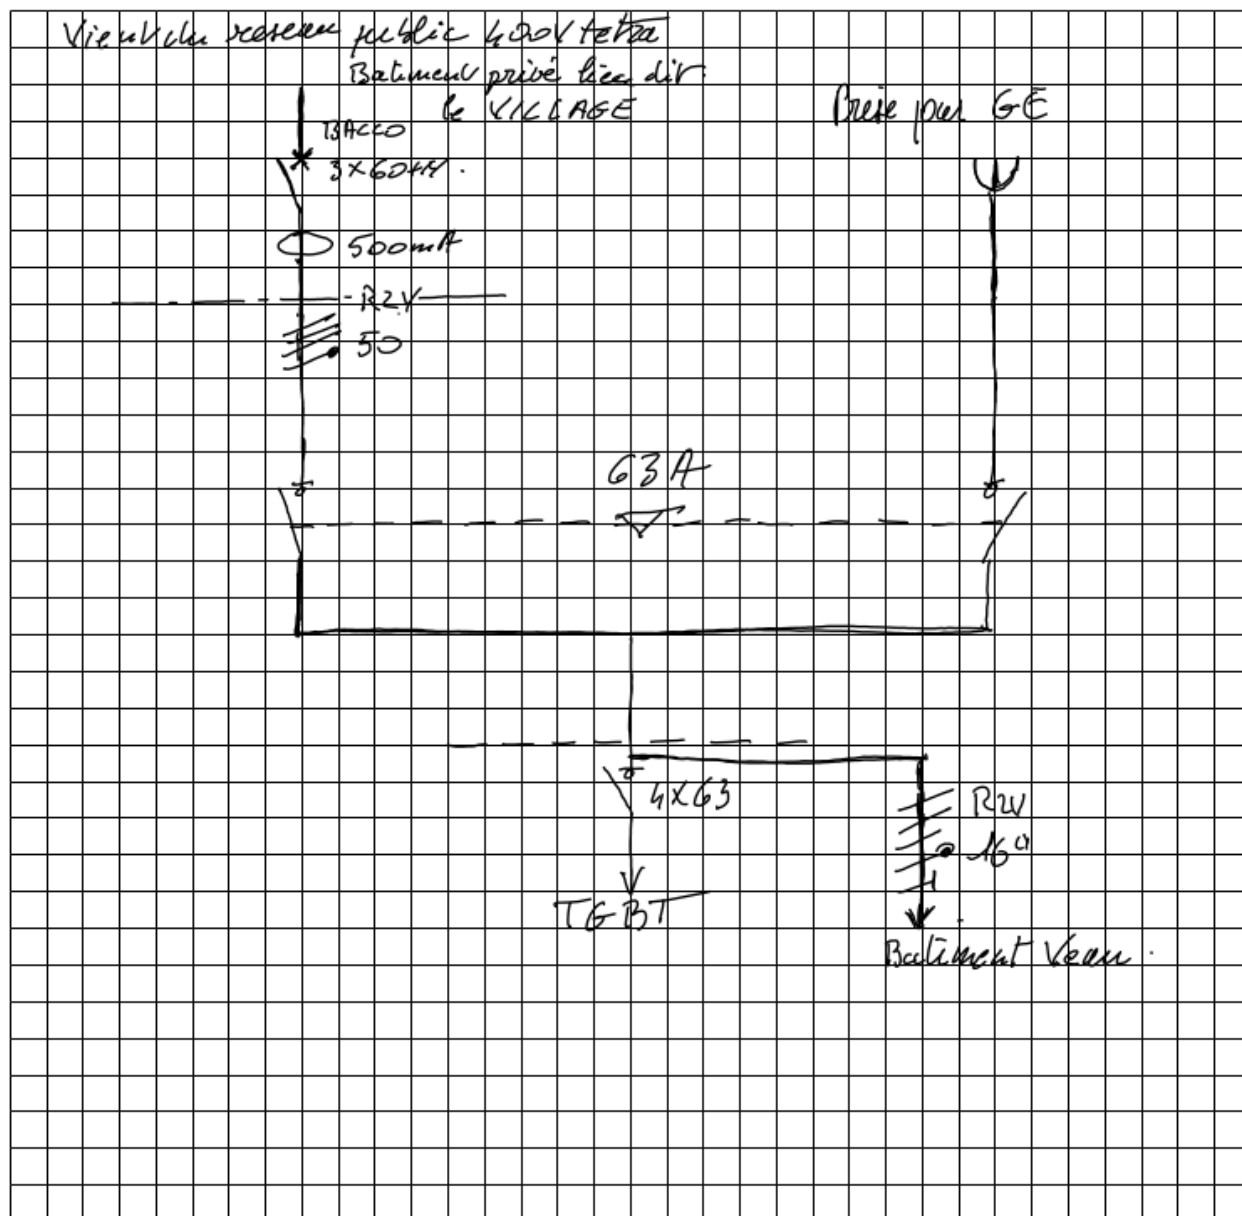 Vient du reseau public 400V tetra
Batiment privé lieu dit
le VILLAGE
Prise pour GE
BACCO
3x60+N.
500mA
R2V
50
63A
4x63
R2V
16²
TGBT
Batiment Veau.